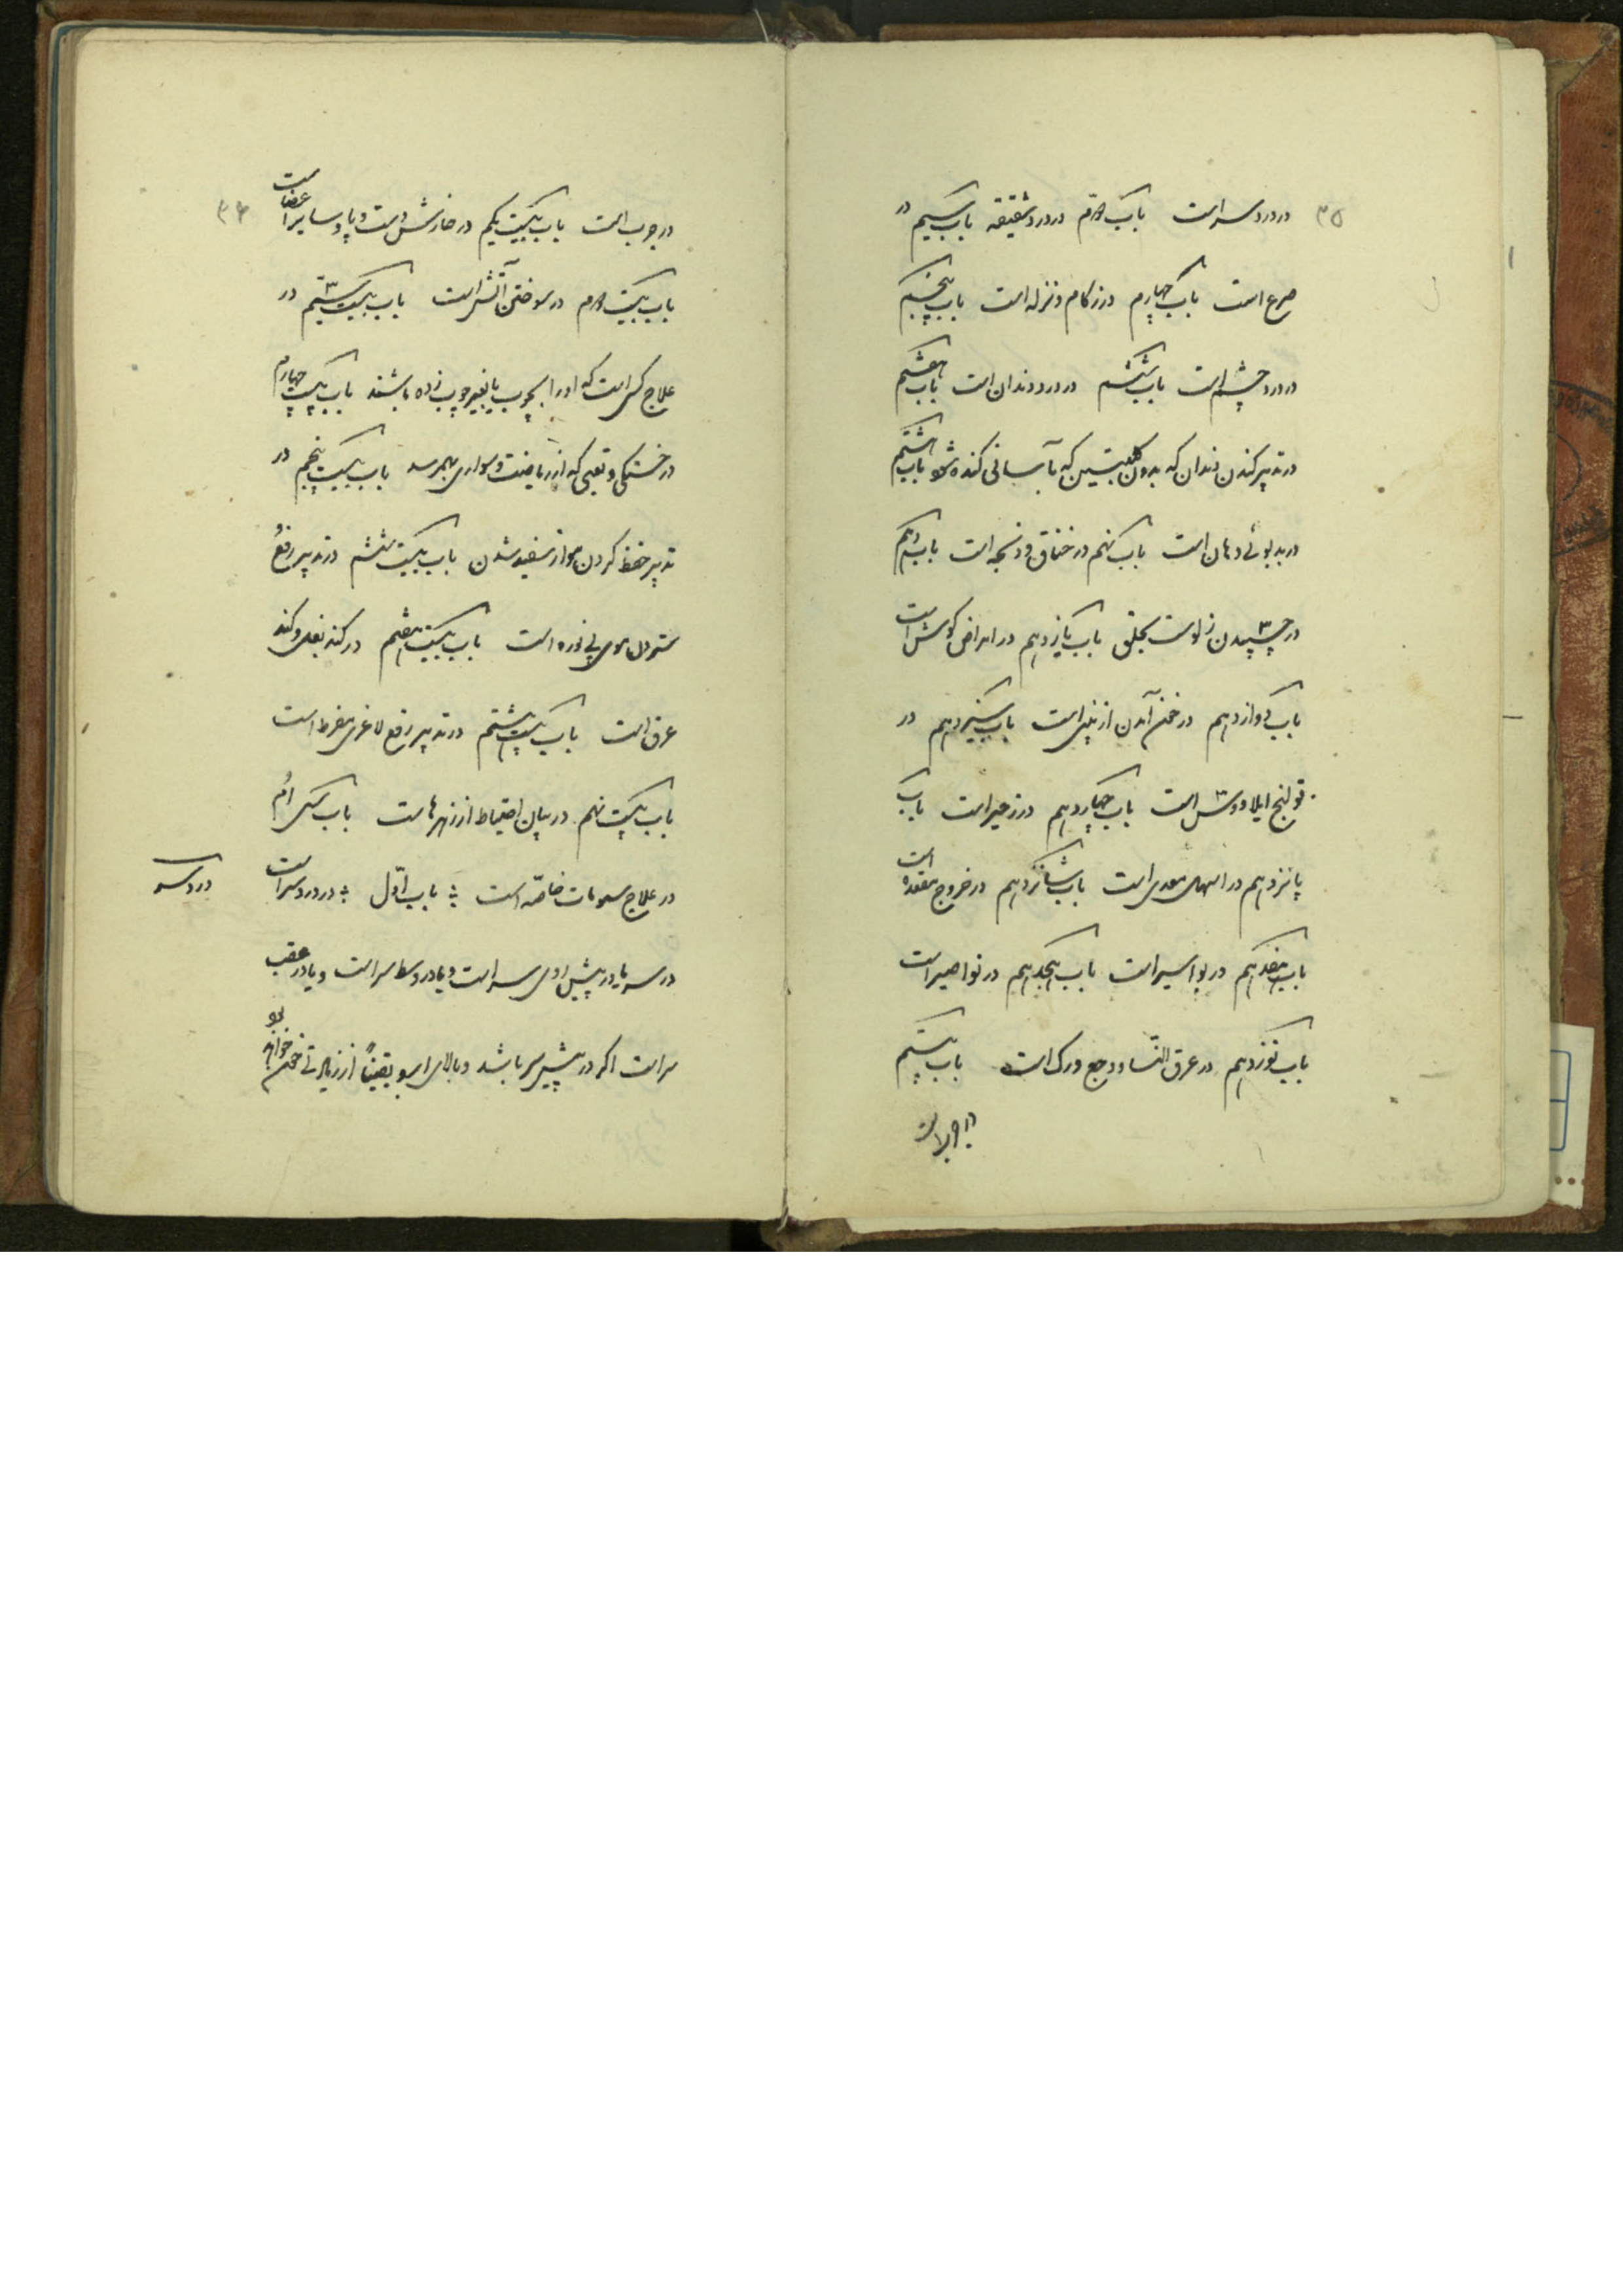 ۳۵
در درد سر است باب دوم در درد شقیقه باب سیم در
صرع است باب چهارم در زکام و نزله است باب پنجم
در درد چشم است باب ششم در درد دندان است باب هفتم
در تدبیر کندن دندان که بدون کلبتین که بآسانی کنده شود باب هشتم
در بدبوئی دهان است باب نهم در خناق و ذبحه است باب دهم
در چسپیدن زلوست بحلق باب یازدهم در امراض کوش است
باب دوازدهم در خون آمدن از بینی است باب سیزدهم در
قولنج ایلاوس است باب چهاردهم در زحیر است باب
پانزدهم در اسهال معدی است باب شانزدهم در خروج مقعده است
باب هفدهم در بواسیر است باب هجدهم در نواصیر است
باب نوزدهم در عرق النسا و وجع ورک است باب بیستم
در جرب است
۳۶
در جرب است باب بیست یکم در خارش دست و پا و سایر اعضاست
باب بیست دوم در سوختن آتش است باب بیست سیم در
علاج کسی است که او را بچوب یا بغیر چوب زده باشند باب بیست چهارم
در خستکی و تعبی که از ریاضت و سواری بهمرسد باب بیست پنجم در
تدبیر حفظ کردن مو از سفید شدن باب بیست ششم در تدبیر رفع
ستردن موی بی نوره است باب بیست هفتم در کند بغل و کند
عرق است باب بیست هشتم در تدبیر رفع لاغری مفرط است
باب بیست نهم در بیان احتیاط از زهرهاست باب سی ام
در علاج سمومات خاصه است باب اول در درد سر است
درد سر
درد سر یا در پیش روی سر است و یا در وسط سر است و یا در عقب
سر است اکر در پیش سر باشد و بالای ابرو یقینا از زیادتی خون خواهد بود